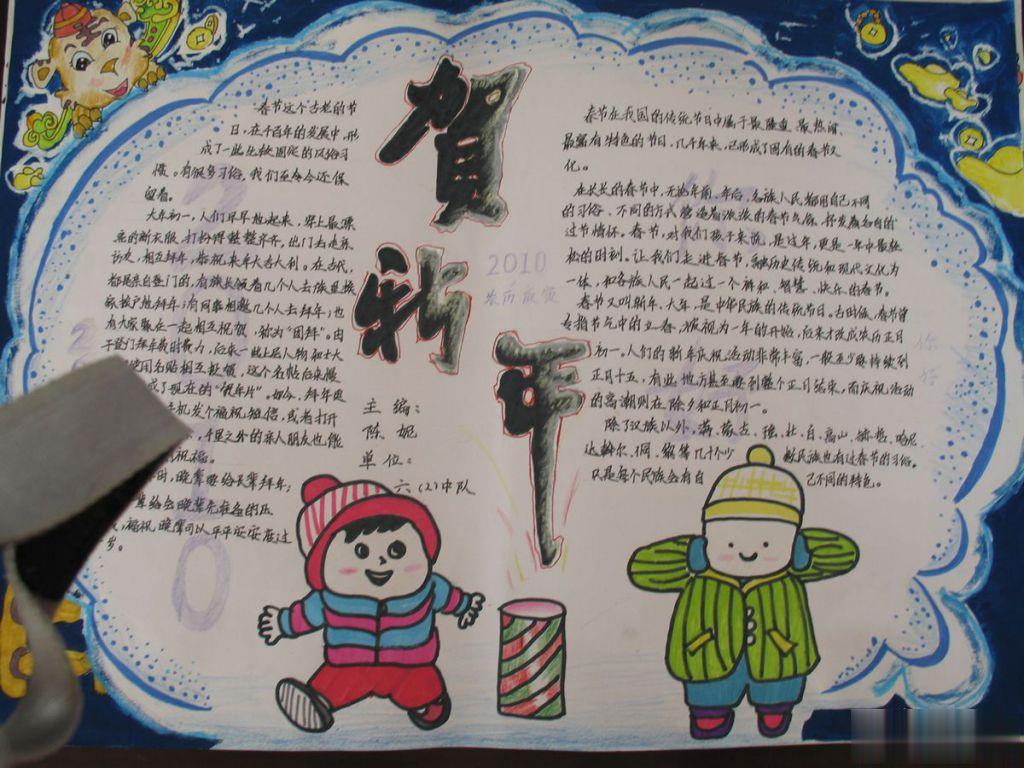 春节这个古老的节
日,在千百年的发展中,形
成了一些比较固定的风俗习
惯。有很多习俗,我们至今还保
留着。
大年初一,人们早早起来,穿上最漂
亮的新衣服,打扮得整整齐齐,出门去走亲
访友,相互拜年,恭祝来年大吉大利。在古代,
都是亲自登门的,有族长领着几个人去族里挨
家挨户地拜年;有同事相邀几个人去拜年;也
有大家聚在一起相互祝贺,称为“团拜”。由
于登门拜年费时费力,后来一些上层人物和士大
使用名贴相互投贺,这个名帖后来慢
成了现在的“贺年片”。如今,拜年
手机发个福祝短信,或者打开
千里之外的亲人朋友也能
祝福。
晚辈要给长辈拜年;
祝福晚辈可以平平安安度过
岁。
賀
新
年
2010
农历
主编:
陈妮
单位:
六(2)中队
春节在我国的传统节日中属于最隆重、最热闹、
最富有特色的节日,几千年来,已形成了固有的春节文
化。
在长长的春节中,无论年前、年后,各族人民都用自己不同
的习俗、不同的方式营造着浓浓的春节气氛,抒发着各自的
过节情怀。春节,对我们孩子来说,是过年,更是一年中最轻
松的时刻。让我们走进春节,融历史传统和现代文化为
一体,和各族人民一起过一个祥和、智慧、快乐的春节。
春节又叫新年、大年,是中华民族的传统节日。古时候,春节曾
专指节气中的立春,被视为一年的开始,后来才改成农历正月
初一。人们的新年庆祝活动非常丰富,一般至少要持续到
正月十五,有些地方甚至要到整个正月结束,而庆祝活动
的高潮则在除夕和正月初一。
除了汉族以外,满、蒙古、瑶、壮、白、高山、赫哲、哈尼、
达斡尔、侗、黎等几十个少数民族也有过春节的习俗。
只是每个民族会有自己不同的特色。